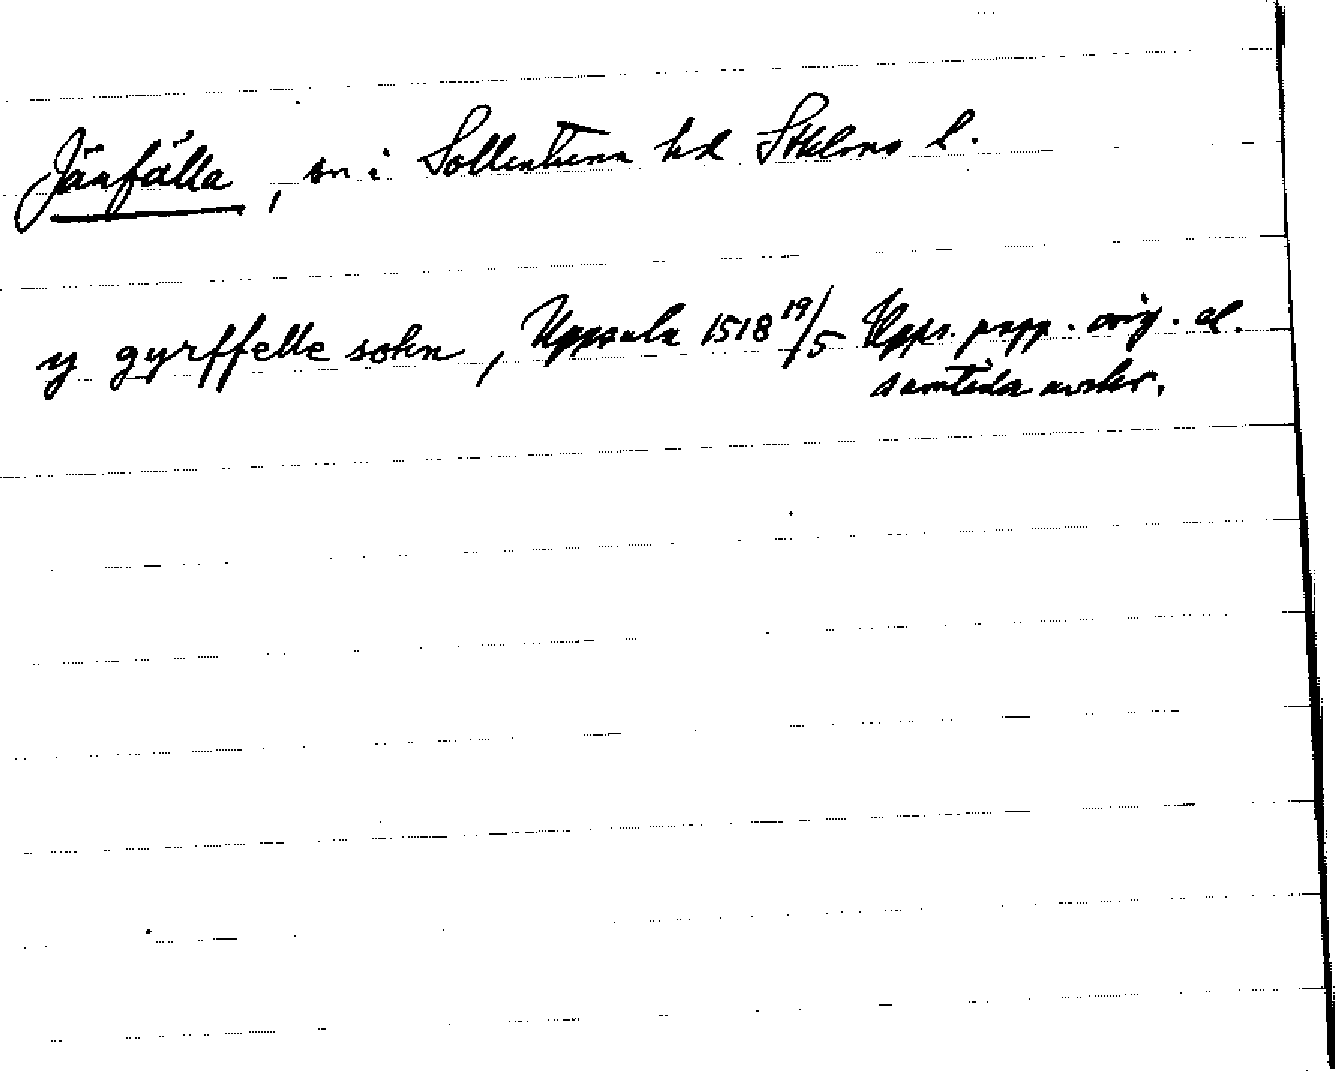 Järfälla, sn i Sollentuna hd Sthlms l.
y gyrffelle sokn, Uppsala 1518 19/5 Upps. papp. orig. el.
samtida avskr.